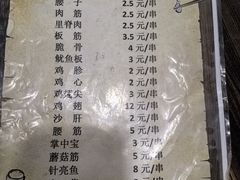 腰 子 2.5 元/串
肉 筋 2.5 元/串
里脊肉 2.5 元/串
板 筋 3.5 元/串
脆 骨 4 元/串
鱿鱼板 3 元/串
鸡 胗 2 元/串
鸡 心 2 元/串
鸡 尖 3 元/串
鸡 翅 12 元/串
沙 肝 2 元/串
腰 筋 5 元/串
掌中宝 3 元/串
蘑菇筋 5 元/串
针亮鱼 8 元/串